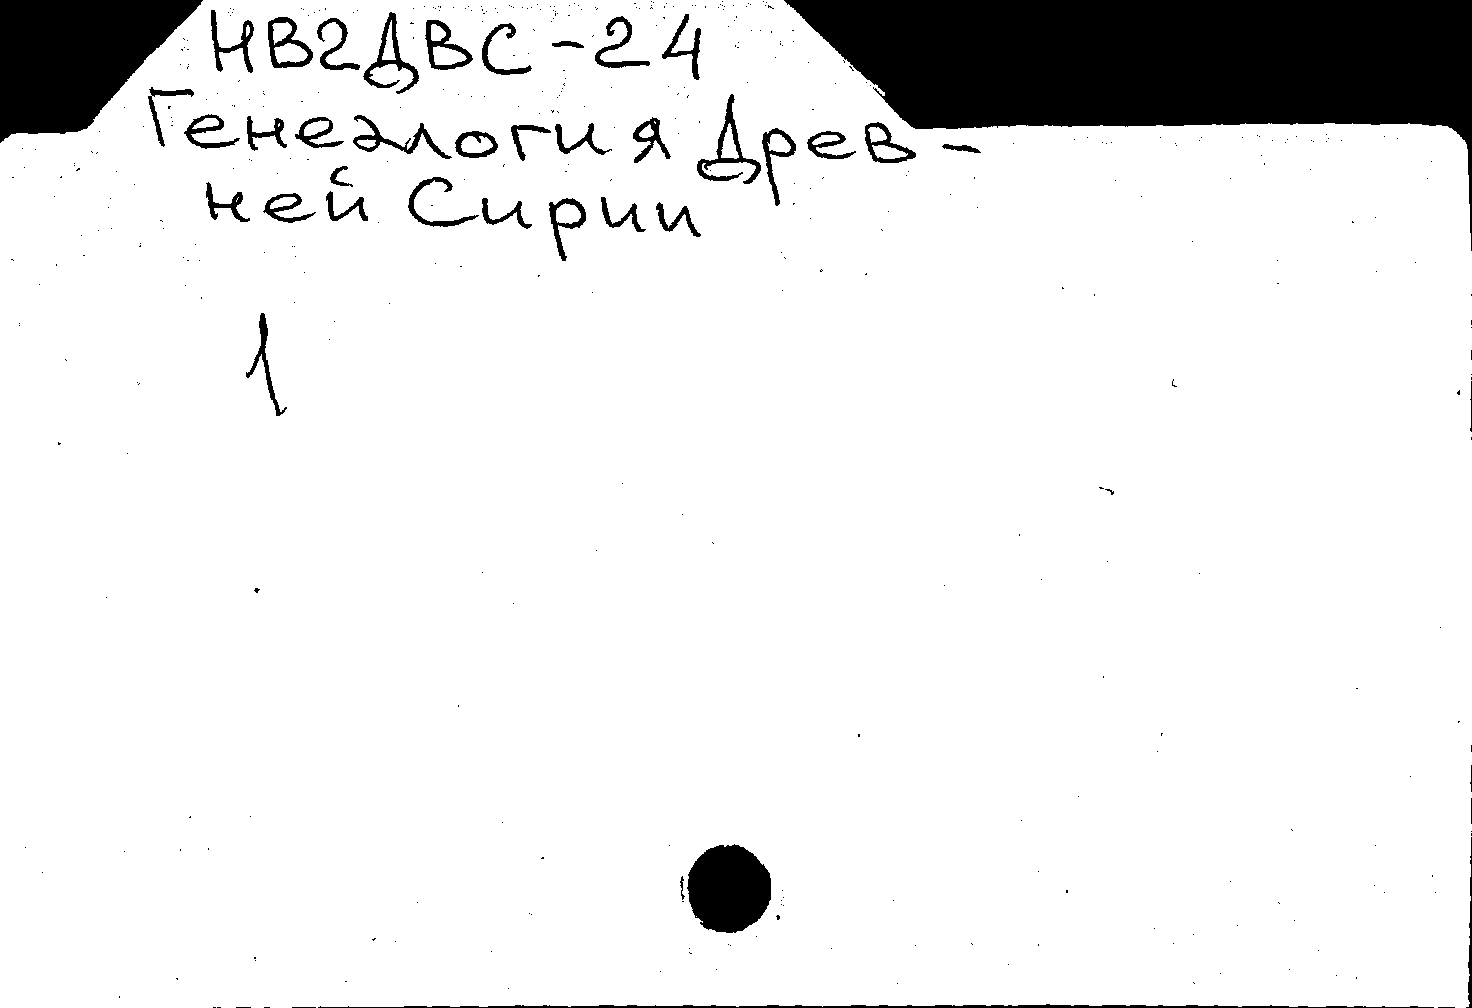 НВ2ДВС-24
Генеалогия Древ-
ней Сирии
1